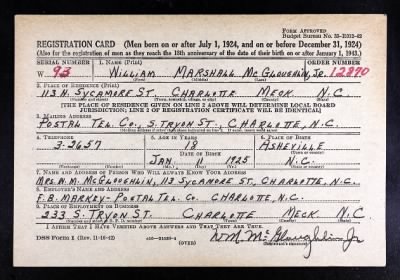 FORM APPROVED
Budget Bureau No. 33-R012-42
REGISTRATION CARD (Men born on or after July 1, 1924, and on or before December 31, 1924)
(Also for the registration of men as they reach the 18th anniversary of the date of their birth on or after January 1, 1943.)
SERIAL NUMBER 1. NAME (Print) ORDER NUMBER
W 93 WILLIAM MARSHALL MCGLOUGHLIN, JR. 12890
(First) (Middle) (Last)
2. PLACE OF RESIDENCE (Print)
113 N. SYCAMORE ST. CHARLOTTE MECK N.C.
(Number and street) (Town, township, village, or city) (County) (State)
[THE PLACE OF RESIDENCE GIVEN ON LINE 2 ABOVE WILL DETERMINE LOCAL BOARD
JURISDICTION; LINE 2 OF REGISTRATION CERTIFICATE WILL BE IDENTICAL]
3. MAILING ADDRESS
POSTAL TEL. CO., S. TRYON ST., CHARLOTTE, N.C.
[Mailing address if other than place indicated on line 2. If same, insert word same]
4. TELEPHONE 5. AGE IN YEARS 6. PLACE OF BIRTH
3-2657 18 ASHEVILLE
DATE OF BIRTH (Town or county)
JAN 11 1925 N.C.
(Exchange) (Number) (Mo.) (Day) (Yr.) (State or country)
7. NAME AND ADDRESS OF PERSON WHO WILL ALWAYS KNOW YOUR ADDRESS
MRS. W. M. MCGLOUGHLIN, 113 SYCAMORE ST. CHARLOTTE, N.C.
8. EMPLOYER'S NAME AND ADDRESS
F. B. MARKEY - POSTAL TEL. CO. CHARLOTTE, N.C.
9. PLACE OF EMPLOYMENT OR BUSINESS
233 S. TRYON ST. CHARLOTTE MECK. N.C.
(Number and street or R. F. D. number) (Town) (County) (State)
I AFFIRM THAT I HAVE VERIFIED ABOVE ANSWERS AND THAT THEY ARE TRUE.
DSS Form 1 (Rev. 11-16-42) (OVER) W.M. McGloughlin Jr